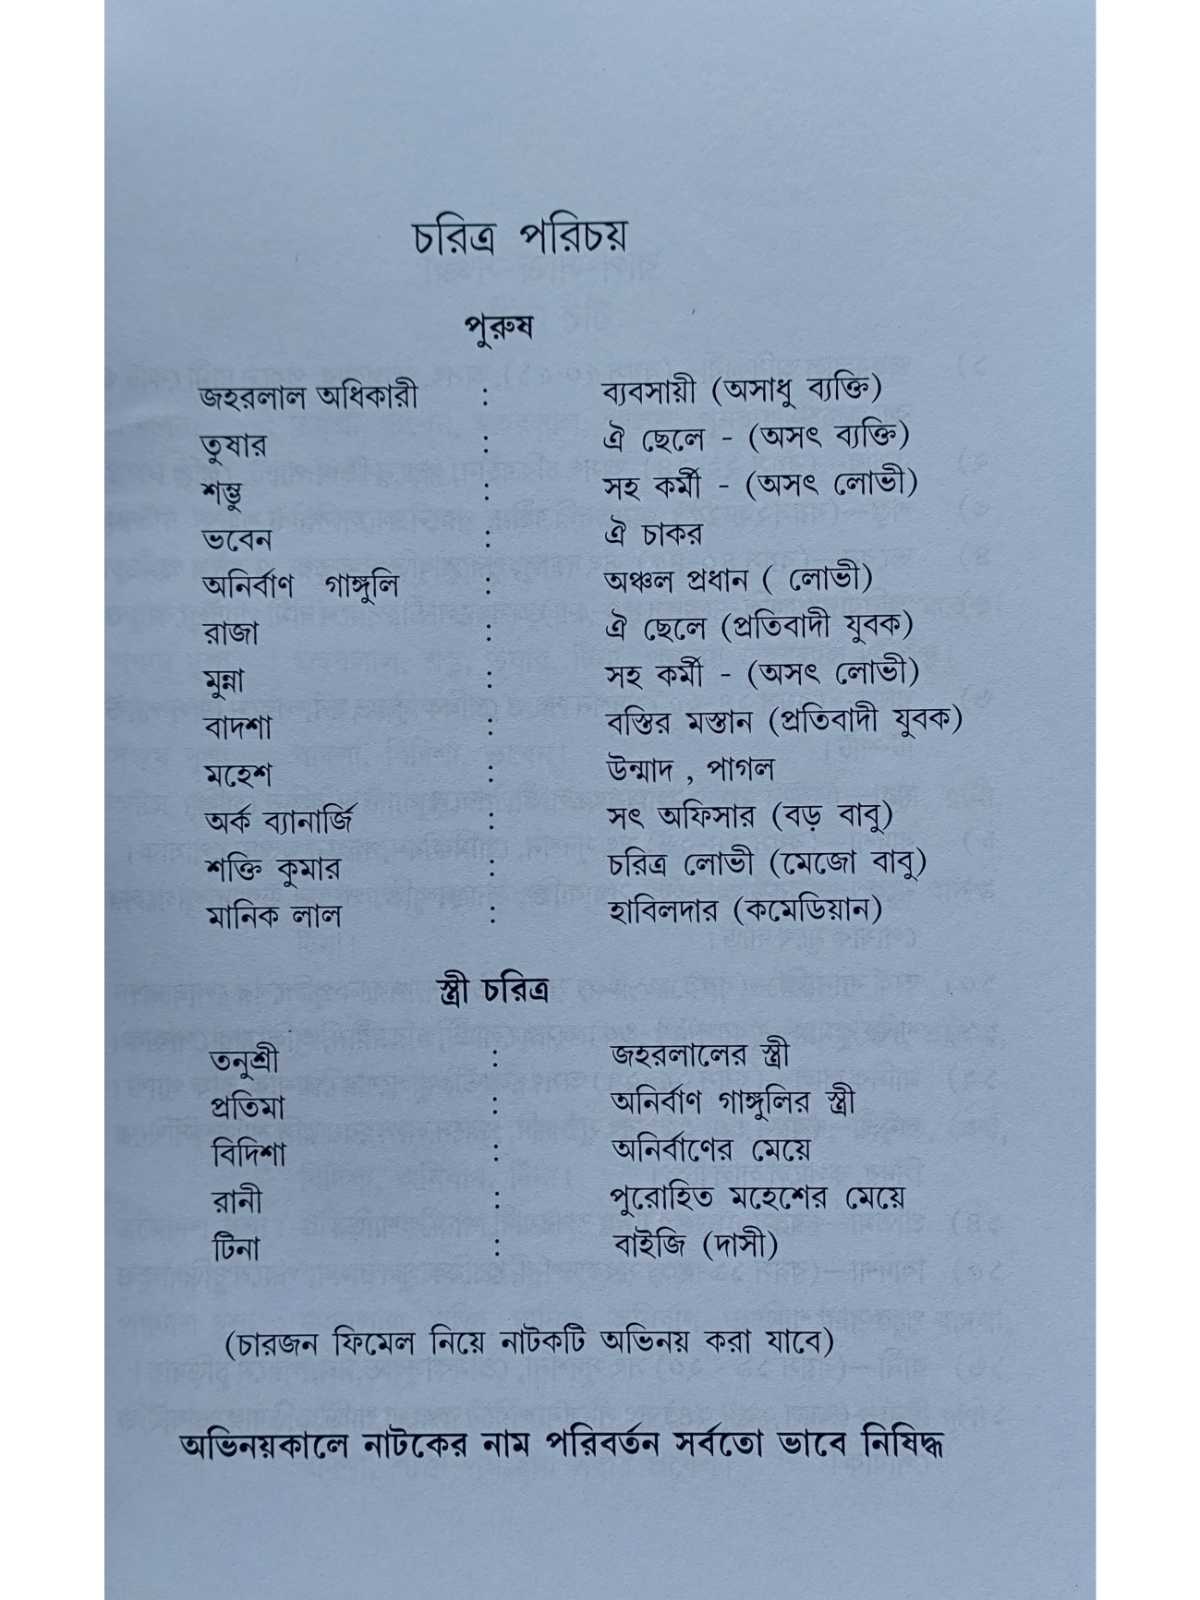 চরিত্র পরিচয়
পুরুষ
জহরলাল অধিকারী : ব্যবসায়ী (অসাধু ব্যক্তি)
তুষার : ঐ ছেলে - (অসৎ ব্যক্তি)
শম্ভু : সহ কর্মী - (অসৎ লোভী)
ভবেন : ঐ চাকর
অনির্বাণ গাঙ্গুলি : অঞ্চল প্রধান ( লোভী)
রাজা : ঐ ছেলে (প্রতিবাদী যুবক)
মুন্না : সহ কর্মী - (অসৎ লোভী)
বাদশা : বস্তির মস্তান (প্রতিবাদী যুবক)
মহেশ : উন্মাদ , পাগল
অর্ক ব্যানার্জি : সৎ অফিসার (বড় বাবু)
শক্তি কুমার : চরিত্র লোভী (মেজো বাবু)
মানিক লাল : হাবিলদার (কমেডিয়ান)
স্ত্রী চরিত্র
তনুশ্রী : জহরলালের স্ত্রী
প্রতিমা : অনির্বাণ গাঙ্গুলির স্ত্রী
বিদিশা : অনির্বাণের মেয়ে
রানী : পুরোহিত মহেশের মেয়ে
টিনা : বাইজি (দাসী)
(চারজন ফিমেল নিয়ে নাটকটি অভিনয় করা যাবে)
অভিনয়কালে নাটকের নাম পরিবর্তন সর্বতো ভাবে নিষিদ্ধ